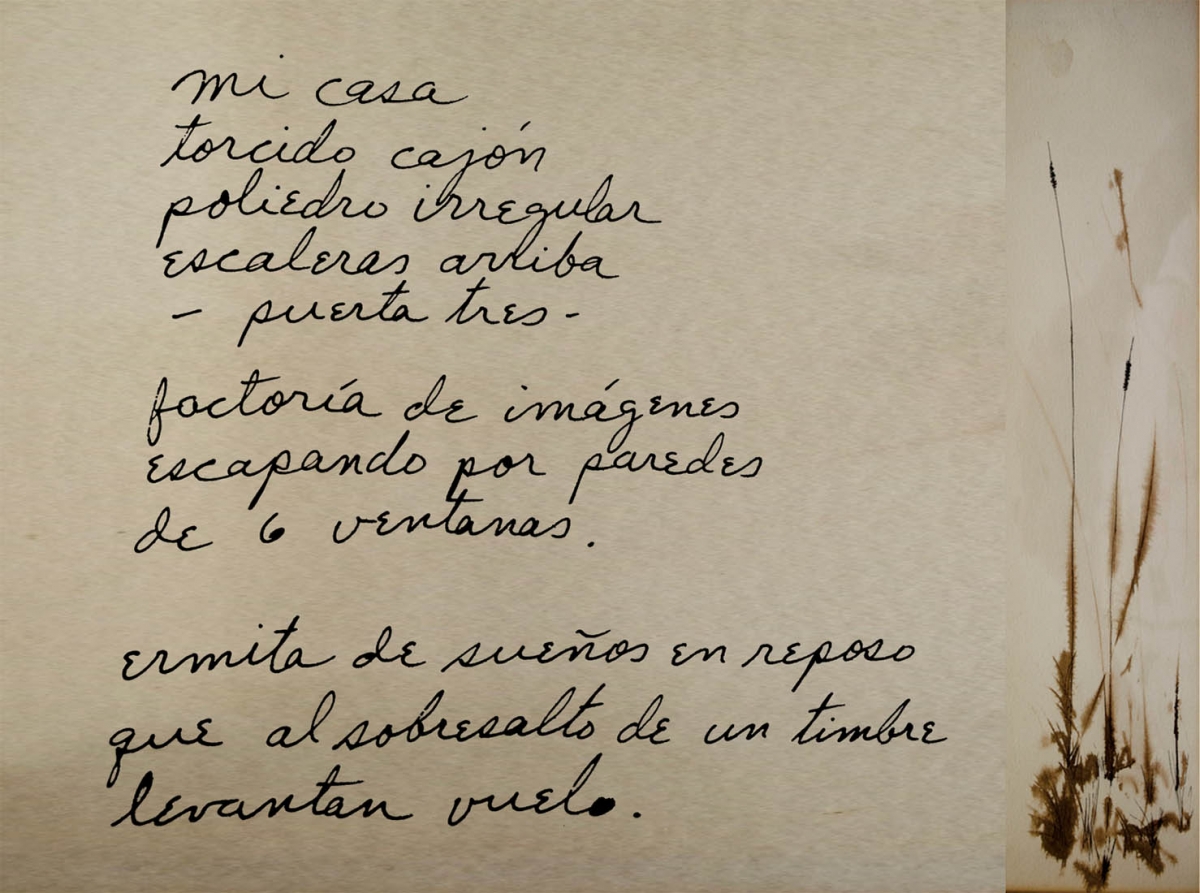 mi casa
torcido cajón
poliedro irregular
escaleras arriba
- puerta tres -
factoría de imágenes
escapando por paredes
de 6 ventanas.
ermita de sueños en reposo
que al sobresalto de un timbre
levantan vuelo.